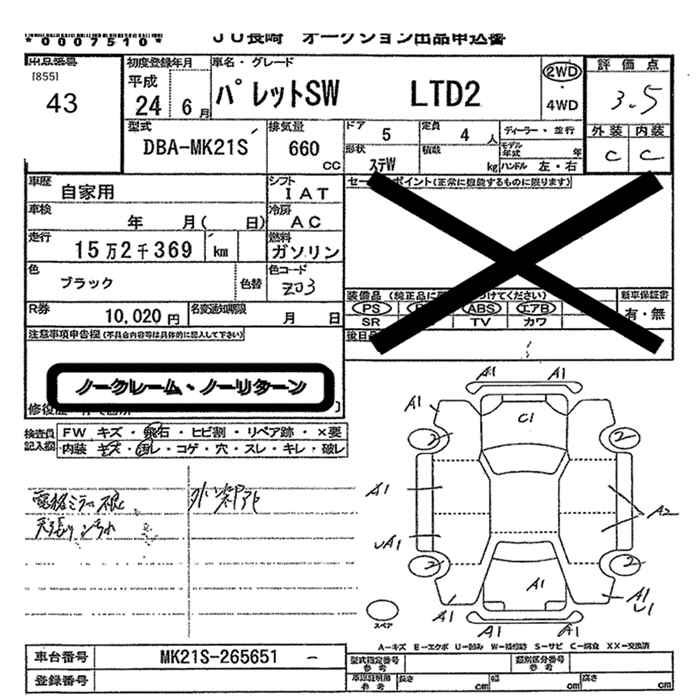 *0007510*
JU長崎 オークション出品申込書
出品番号
[855]
43
初度登録年月
平成
24 6 月
車名・グレード
パレットSW LTD2
2WD
・
4WD
評価点
3.5
外装 内装
C C
型式
DBA-MK21S
排気量
660
CC
ドア 5
定員 4 人
ディーラー・並行
形状 ステW
積載 kg
モデル年式 年
ハンドル 左・右
車歴
自家用
シフト
IAT
車検
年 月( 日)
冷房
AC
走行
15万2千369 km
燃料
ガソリン
色
ブラック
色替
色コード
Z03
R券
10,020 円
名変通知期限
月 日
装備品
PS ABS エアB
SR TV カワ
新車保証書
有・無
後日品
注意事項申告欄(不具合内容等は具体的に記入して下さい)
ノークレーム・ノーリターン
検査員
記入欄
FW キズ・飛石・ヒビ割・リペア跡・×要
内装 キズ・汚レ・コゲ・穴・スレ・キレ・破レ
電格ミラー不良
天張りヨゴレ
A1 A1
A1
C1
2 2
A1
A2
UA1
2 2
A1
A1
A1
U1
A1 A1
スペア
A-キズ E-エクボ U-凹み W-補修跡 S-サビ C-腐食 XX-交換済
車台番号
MK21S-265651 -
登録番号
型式指定番号
参考
類別区分番号
参考
車認証明用
参考
長さ cm
幅 cm
高さ cm